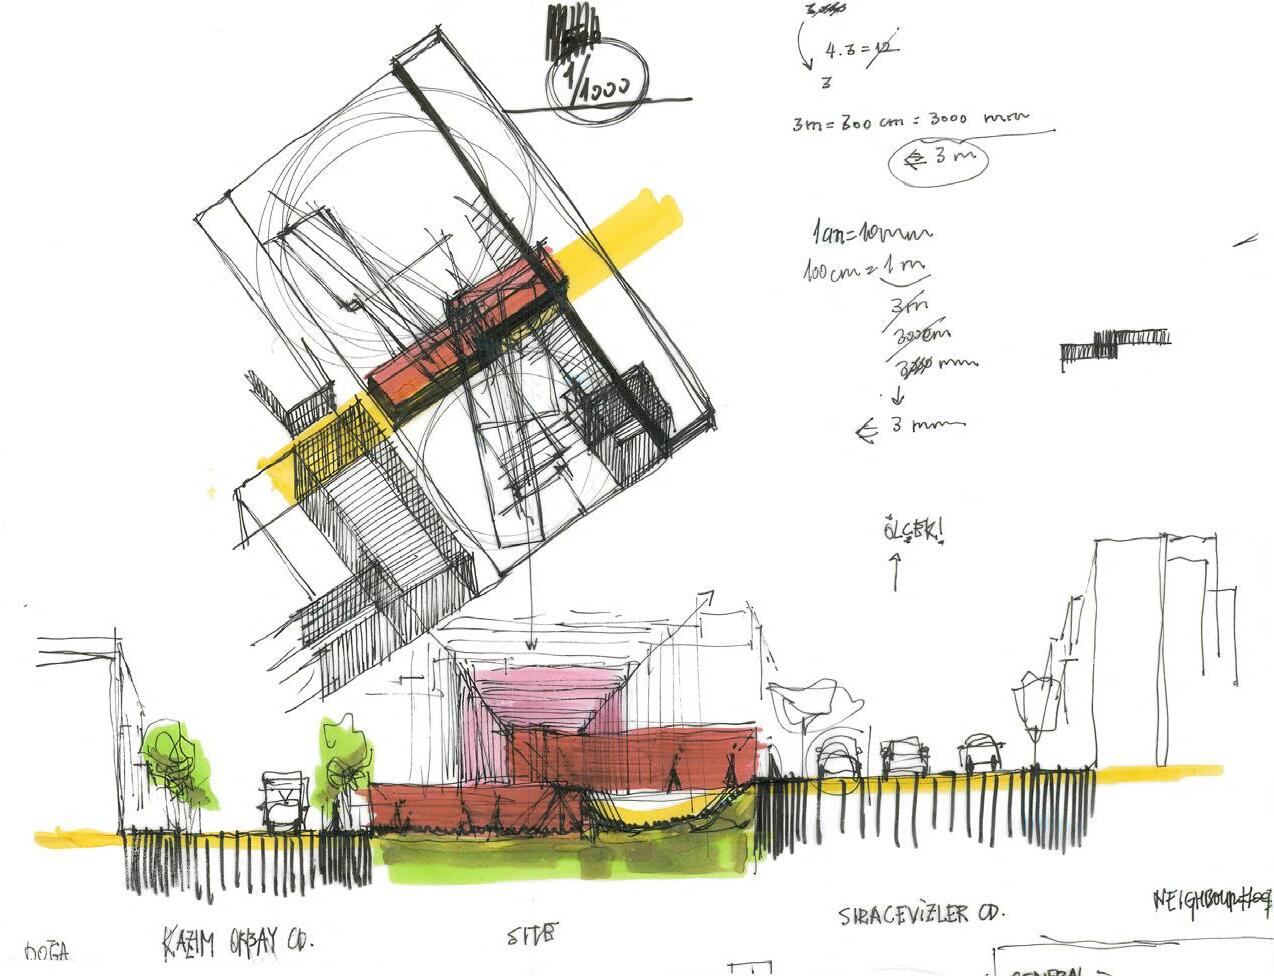 1/1000
4.3=12
3
3m = 300 cm = 3000 mm
⇐ 3 m
1cm=10mm
100cm = 1 m
3m
300cm
3000 mm
⇐ 3 mm
ÖLÇEK!
KAZIM ORBAY CD.
SITE
SIRACEVİZLER CD.
DOĞA
GENERAL